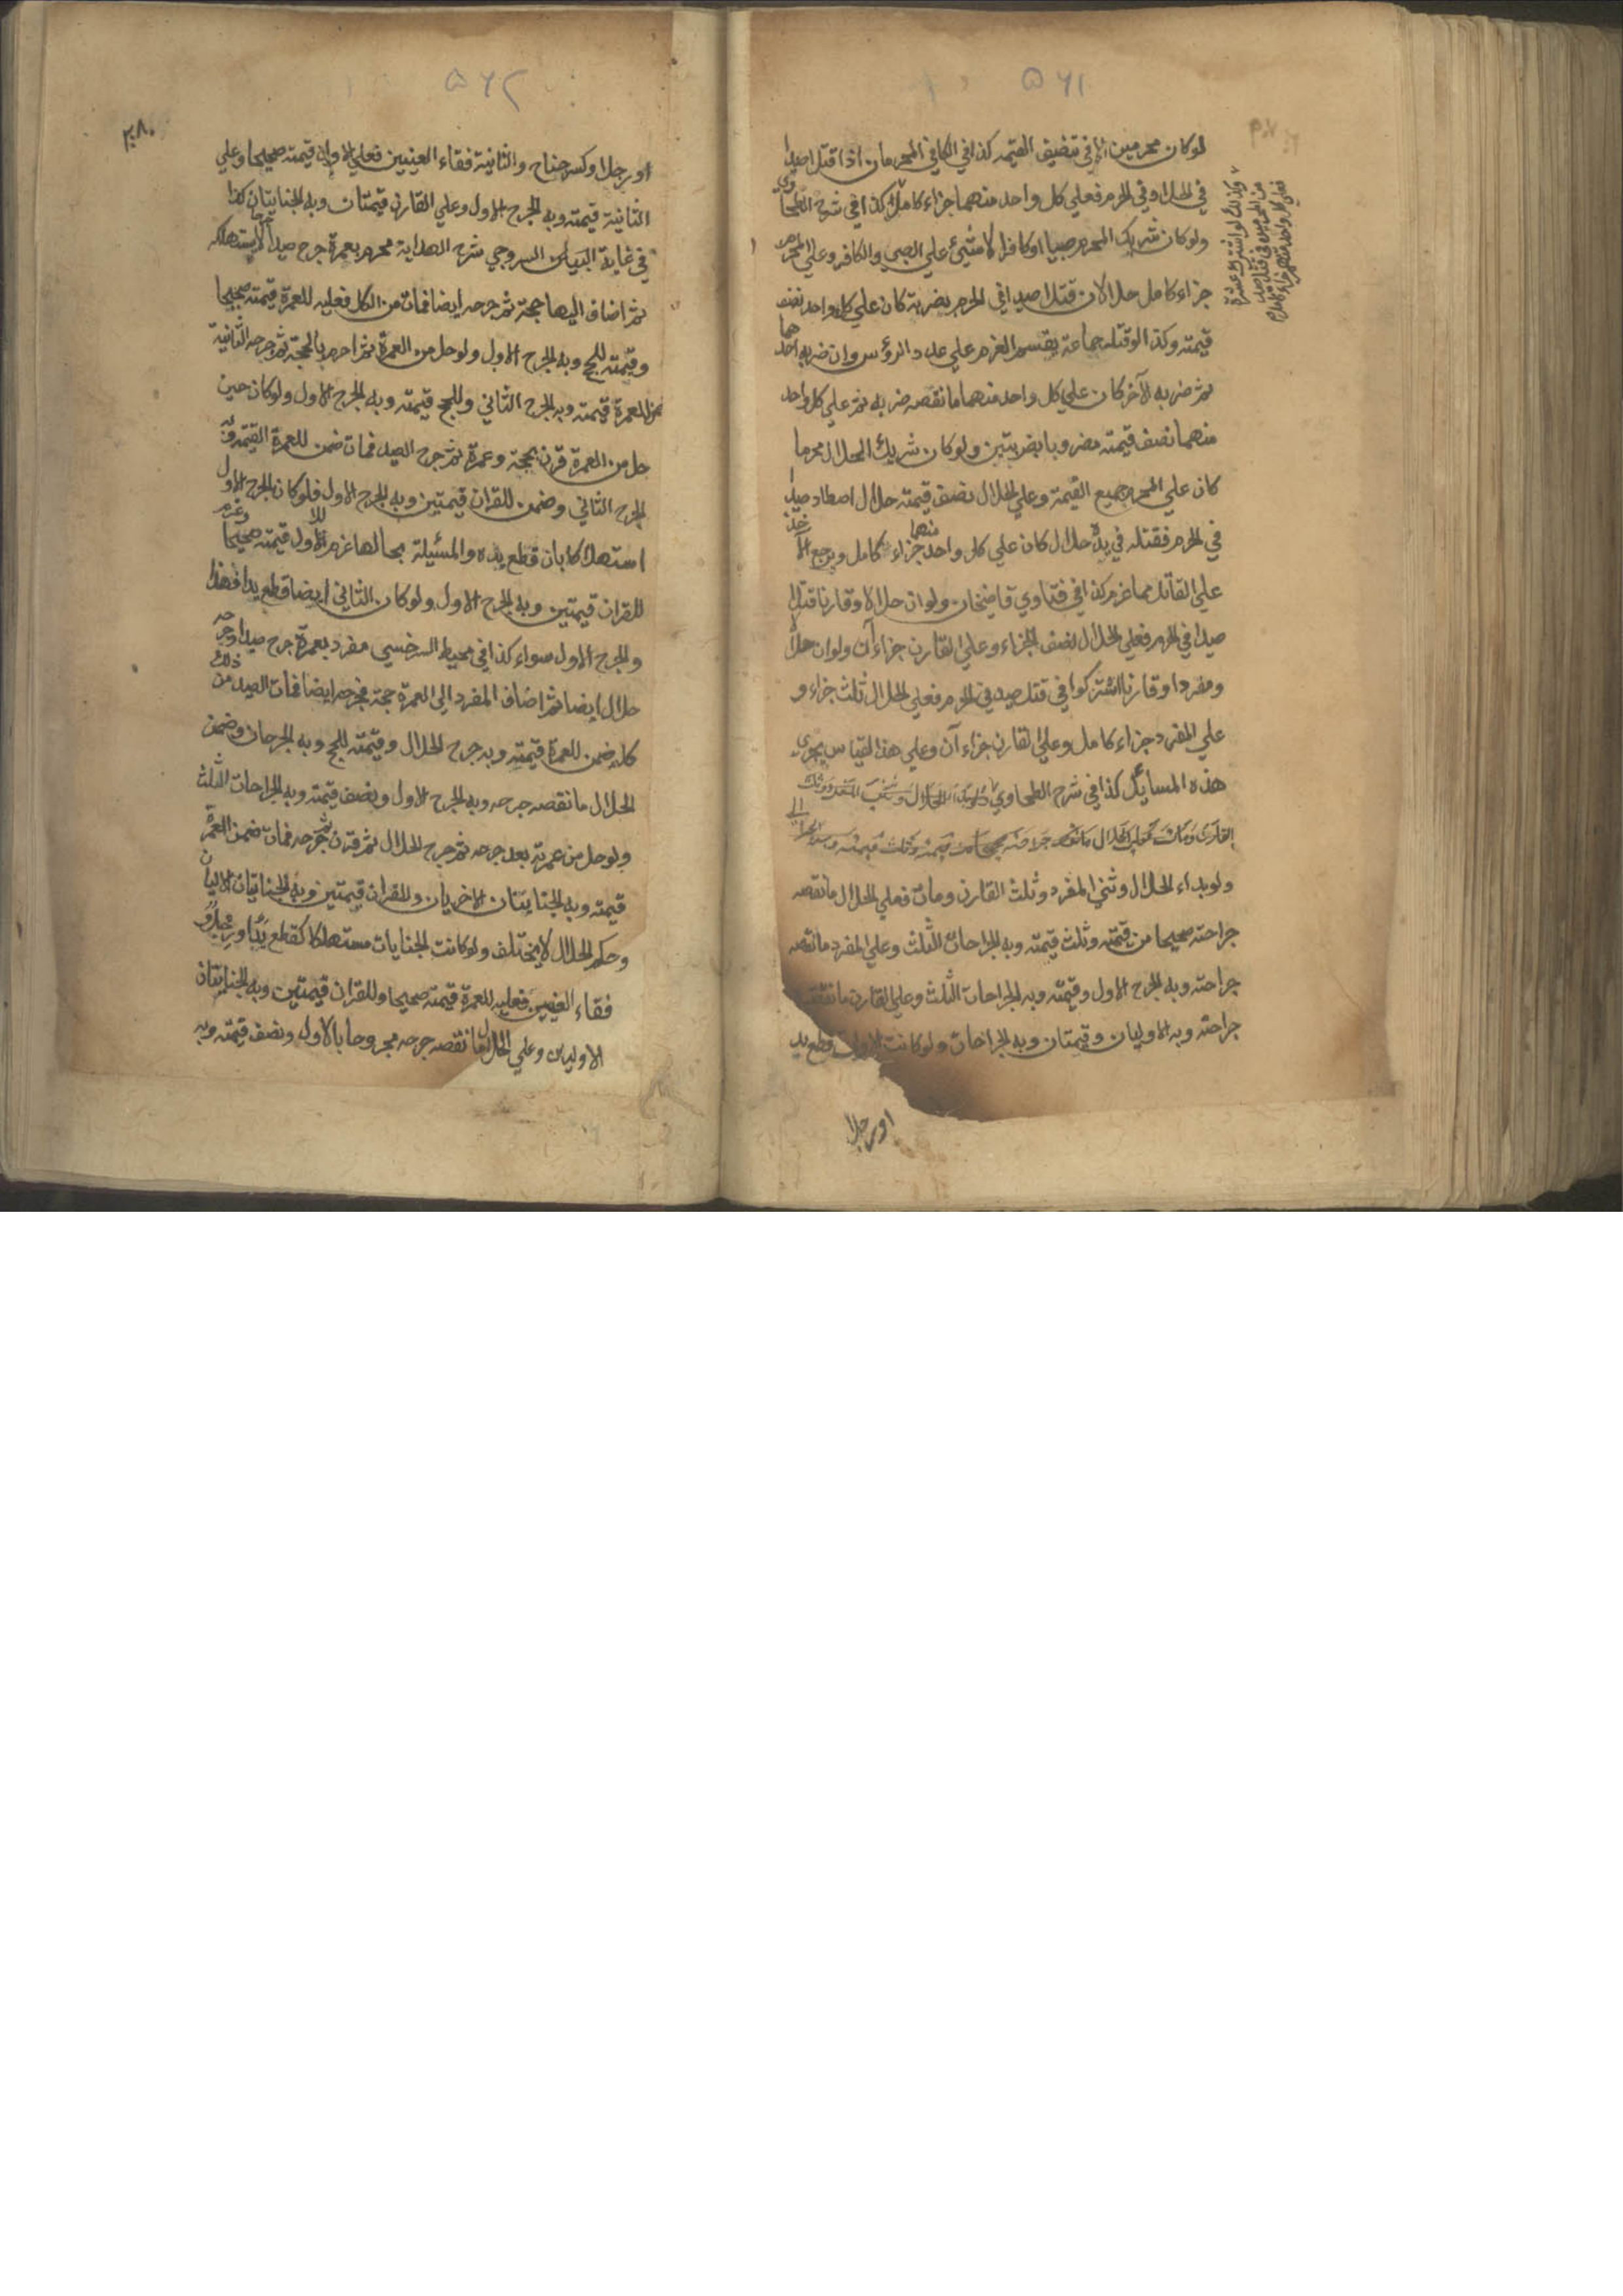 ٥٦١
لو كان محرمين الا في تنضيف القيمة كذا في الكافي المحرمان اذا قتلا صيدا
في الحل او في الحرم فعلي كل واحد منهما جزاء كامل كذا في شرح الطحاوي
ولو كان شريك المحرم صبيا او كافرا لا شيئ علي الصبي والكافر وعلي المحرم
جزاء كامل حلالان قتلا صيدا في الحرم بضربة كان علي كل واحد نصف
قيمته وكذا لو قتله جماعة يقتسم الغرم علي عدد الرؤس وان ضربه احدهما
ثم ضربه الآخر كان علي كل واحد منهما ما نقصه ضربه ثم علي كل واحد
منهما نصف قيمته مضروبا بضربتين ولو كان شريك الحلال محرما
كان علي المحرم جميع القيمة وعلي الحلال نصف قيمته حلال اصطاد صيدا
في الحرم فقتله في يده حلال كان علي كل واحد منهما جزاء كامل ويرجع الآخذ
علي القاتل مما غرم كذا في فتاوي قاضيخان ولو ان حلالا وقارنا قتلا
صيدا في الحرم فعلي الحلال نصف الجزاء وعلي القارن جزاءآن ولو ان حلالا
ومفردا وقارنا اشتركوا في قتل صيد في الحرم فعلي الحلال ثلث جزاء و
علي المفرد جزاء كامل وعلي القارن جزاءآن وعلي هذا القياس يجوي
هذه المسايل كذا في شرح الطحاوي
ولو بداء الحلال وثني المفرد وثلث القارن ومات فعلي الحلال ما نقصه
جراحته صحيحا من قيمته وثلث قيمته وبه الجراحات الثلث وعلي المفرد ما نقصه
جراحته وبه الجرح الاول وقيمته وبه الجراحات الثلث وعلي القارن ما نقصه
جراحته وبه الاوليان وقيمتان وبه الجراحات ولو كانت الاولي قطع يد
او رجلا
وكذلك لو اشترك عشرة
من المحرمين في قتل صيد
فعلي كل واحد منهم جزاء كامل
٥٦٢
٢٠٨
او رجل او كسر جناح والثانية فقاء العينين فعلي الاول قيمته صحيحا وعلي
الثانية قيمته وبه الجرح الاول وعلي القارن قيمتان وبه الجنايتان كذا
في غاية البيان السروجي شرح الهداية محرم بعمرة جرح صيدا جرحا لا يستهلكه
ثم اضاف اليها حجة ثم جرحه ايضا فمات من الكل فعليه للعمرة قيمته صحيحا
وقيمته للحج وبه الجرح الاول ولو حل من العمرة ثم احرم بالحجة ثم جرحه الثانية
للعمرة قيمته وبه الجرح الثاني وللحج قيمته وبه الجرح الاول ولو كان حين
حل من العمرة قرن بحجة وعمرة ثم جرح الصيد فمات ضمن للعمرة القيمة وبه
الجرح الثاني وضمن للقران قيمتين وبه الجرح الاول فلو كان الجرح الاول
استهلاكا بان قطع يده والمسئيلة بحالها غرم للاول قيمته صحيحا وغرم
للقران قيمتين وبه الجرح الاول ولو كان الثاني ايضا قطع يد فهذا
والجرح الاول سواء كذا في محيط السرخسي مفرد بعمرة جرح صيدا وجرحه
حلال ايضا ثم اضاف المفرد الي العمرة حجة فجرحه ايضا فمات الصيد من ذلك
كله ضمن للعمرة قيمته وبه جرح الحلال وقيمته للحج وبه الجرحان وضمن
الحلال ما نقصه جرحه وبه الجرح الاول ونصف قيمته وبه الجراحات الثلث
ولو حل من عمرته بعد جرحه ثم جرح الحلال ثم قرن ثم جرحه فمات ضمن العمرة
قيمته وبه الجنايتان الاخريان وللقران قيمتين وبه الجنايتان الاوليان
وحكم الحلال لا يختلف ولو كانت الجنايات مستهلكا كقطع يد ورجل و
فقاء العينين فعليه للعمرة قيمته صحيحا وللقران قيمتين وبه الجنايتان
الاوليان وعلي الحلال ما نقصه جرحه مجروحا بالاول ونصف قيمته وبه